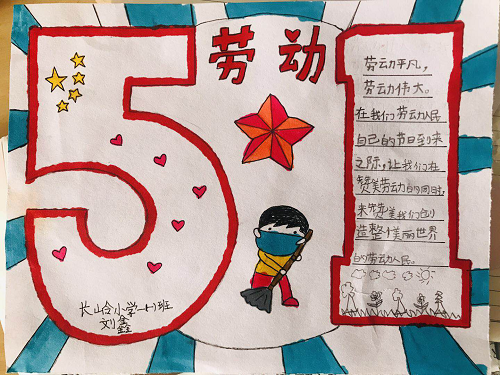 51
劳动
劳动平凡，
劳动伟大。
在我们劳动人民
自己的节日到来
之际，让我们在
赞美劳动的同时，
来赞美我们创
造整个美丽世界
的劳动人民。
长山令小学一(1)班
刘鑫